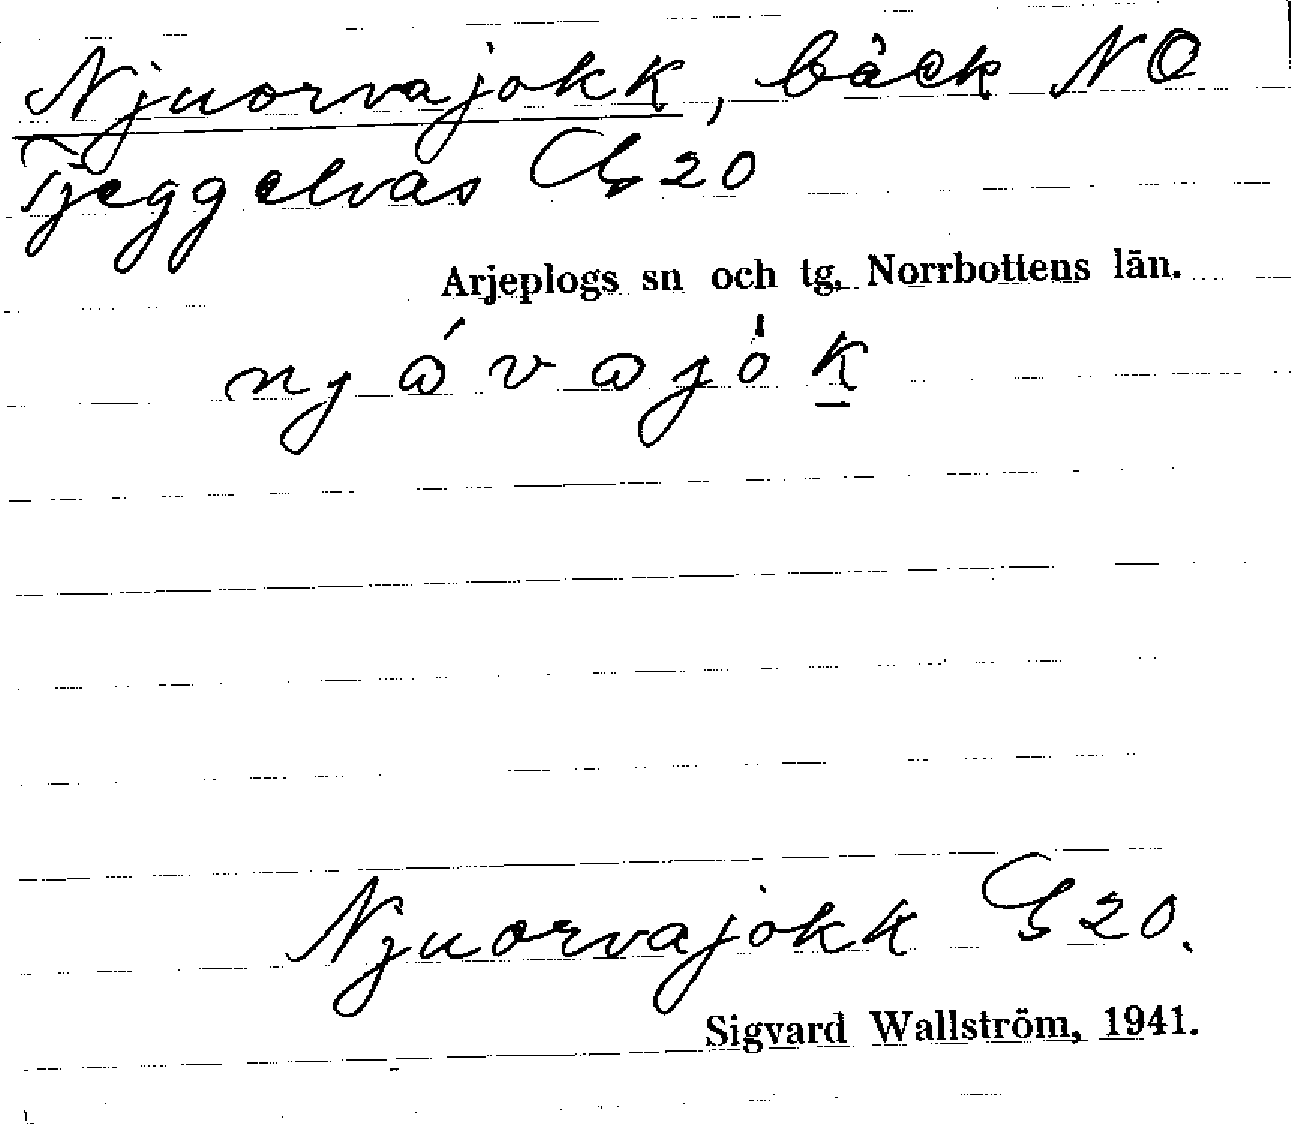 Njuorvajokk, bäck NO
Tjeggelvas G20
Arjeplogs sn och tg, Norrbottens län.
Njuorvajokk G20.
Sigvard Wallström, 1941.